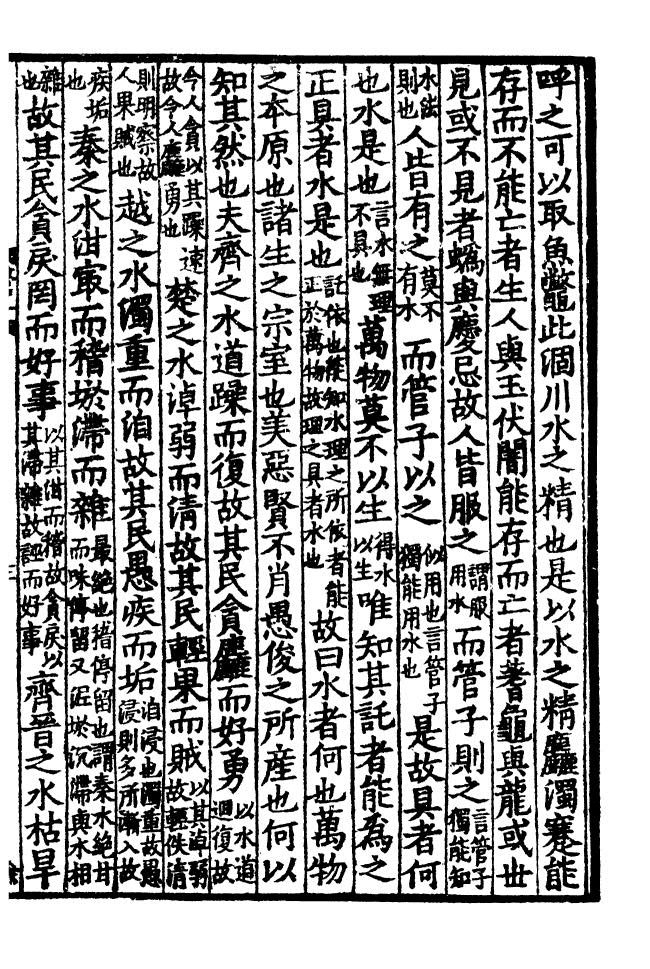 呼之可以取魚鼈此涸川水之精也是以水之精麤濁蹇能
存而不能亡者生人與玉伏闇能存而亡者蓍龜與龍或世
見或不見者蟡與慶忌故人皆服之謂服用水而管子則之言管子獨能知
水法則也人皆有之莫不有水而管子以之似用也言管子獨能用水也是故具者何
也水是也言水無理不具也萬物莫不以生得水以生唯知其託者能為之
正具者水是也託依也能知水理之所依者能正於萬物故理之具者水也故曰水者何也萬物
之本原也諸生之宗室也美惡賢不肖愚俊之所産也何以
知其然也夫齊之水道躁而復故其民貪麤而好勇以水道迴復故
令人貪以其躁速故令人麤勇也楚之水淖弱而清故其民輕果而賊以其淖弱故輕佚清
則明察故人果賊也越之水濁重而洎故其民愚疾而垢洎浸也濁重故愚浸則多所漸入故
疾垢也秦之水泔冣而稽淤滯而雜最絶也稽停留也謂秦水絶甘而味停留又泥淤沉滯與水相
雜也故其民貪戾罔而好事以其泔而稽故貪戾以其滯雜故誣而好事齊晉之水枯旱